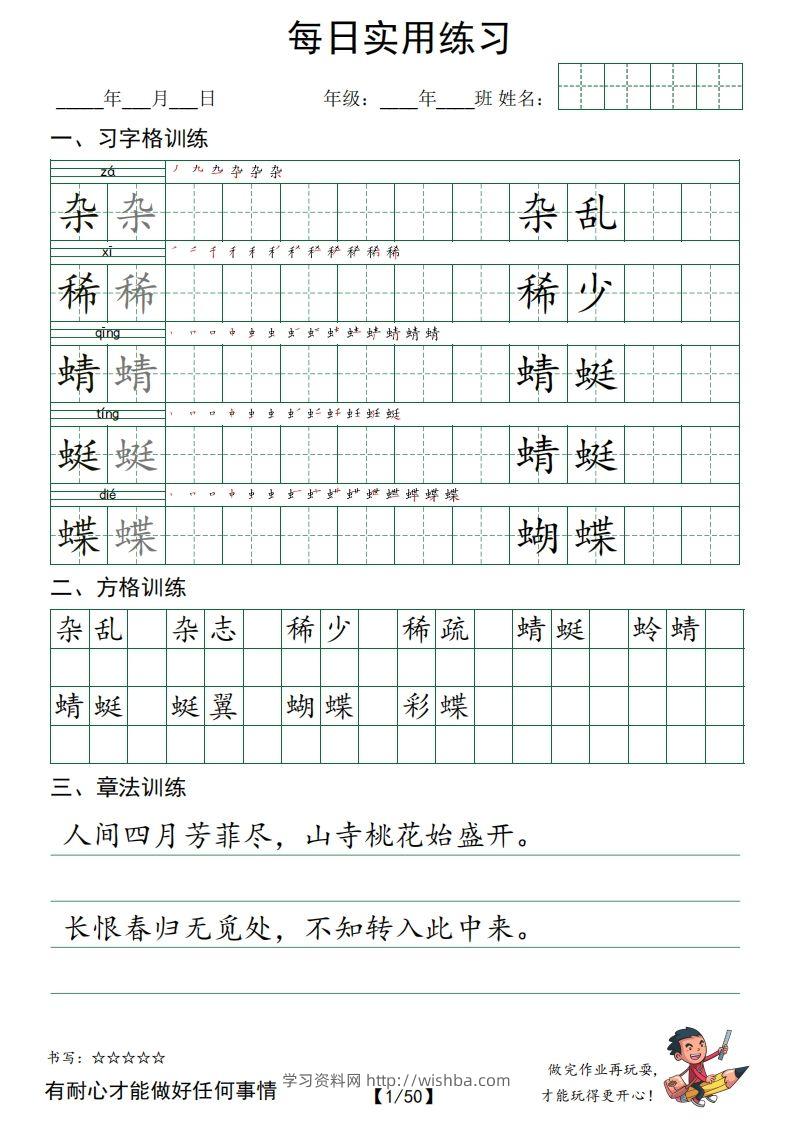 每日实用练习
_____年___月___日 年级：____年____班 姓名：
一、习字格训练
zá
杂 杂 杂 乱
xī
稀 稀 稀 少
qīng
蜻 蜻 蜻 蜓
tíng
蜓 蜓 蜻 蜓
dié
蝶 蝶 蝴 蝶
二、方格训练
杂乱 杂志 稀少 稀疏 蜻蜓 蛉蜻
蜻蜓 蜓翼 蝴蝶 彩蝶
三、章法训练
人间四月芳菲尽，山寺桃花始盛开。
长恨春归无觅处，不知转入此中来。
书写：☆☆☆☆☆
有耐心才能做好任何事情
学习资料网 http://wishba.com
【1/50】
做完作业再玩耍，
才能玩得更开心！